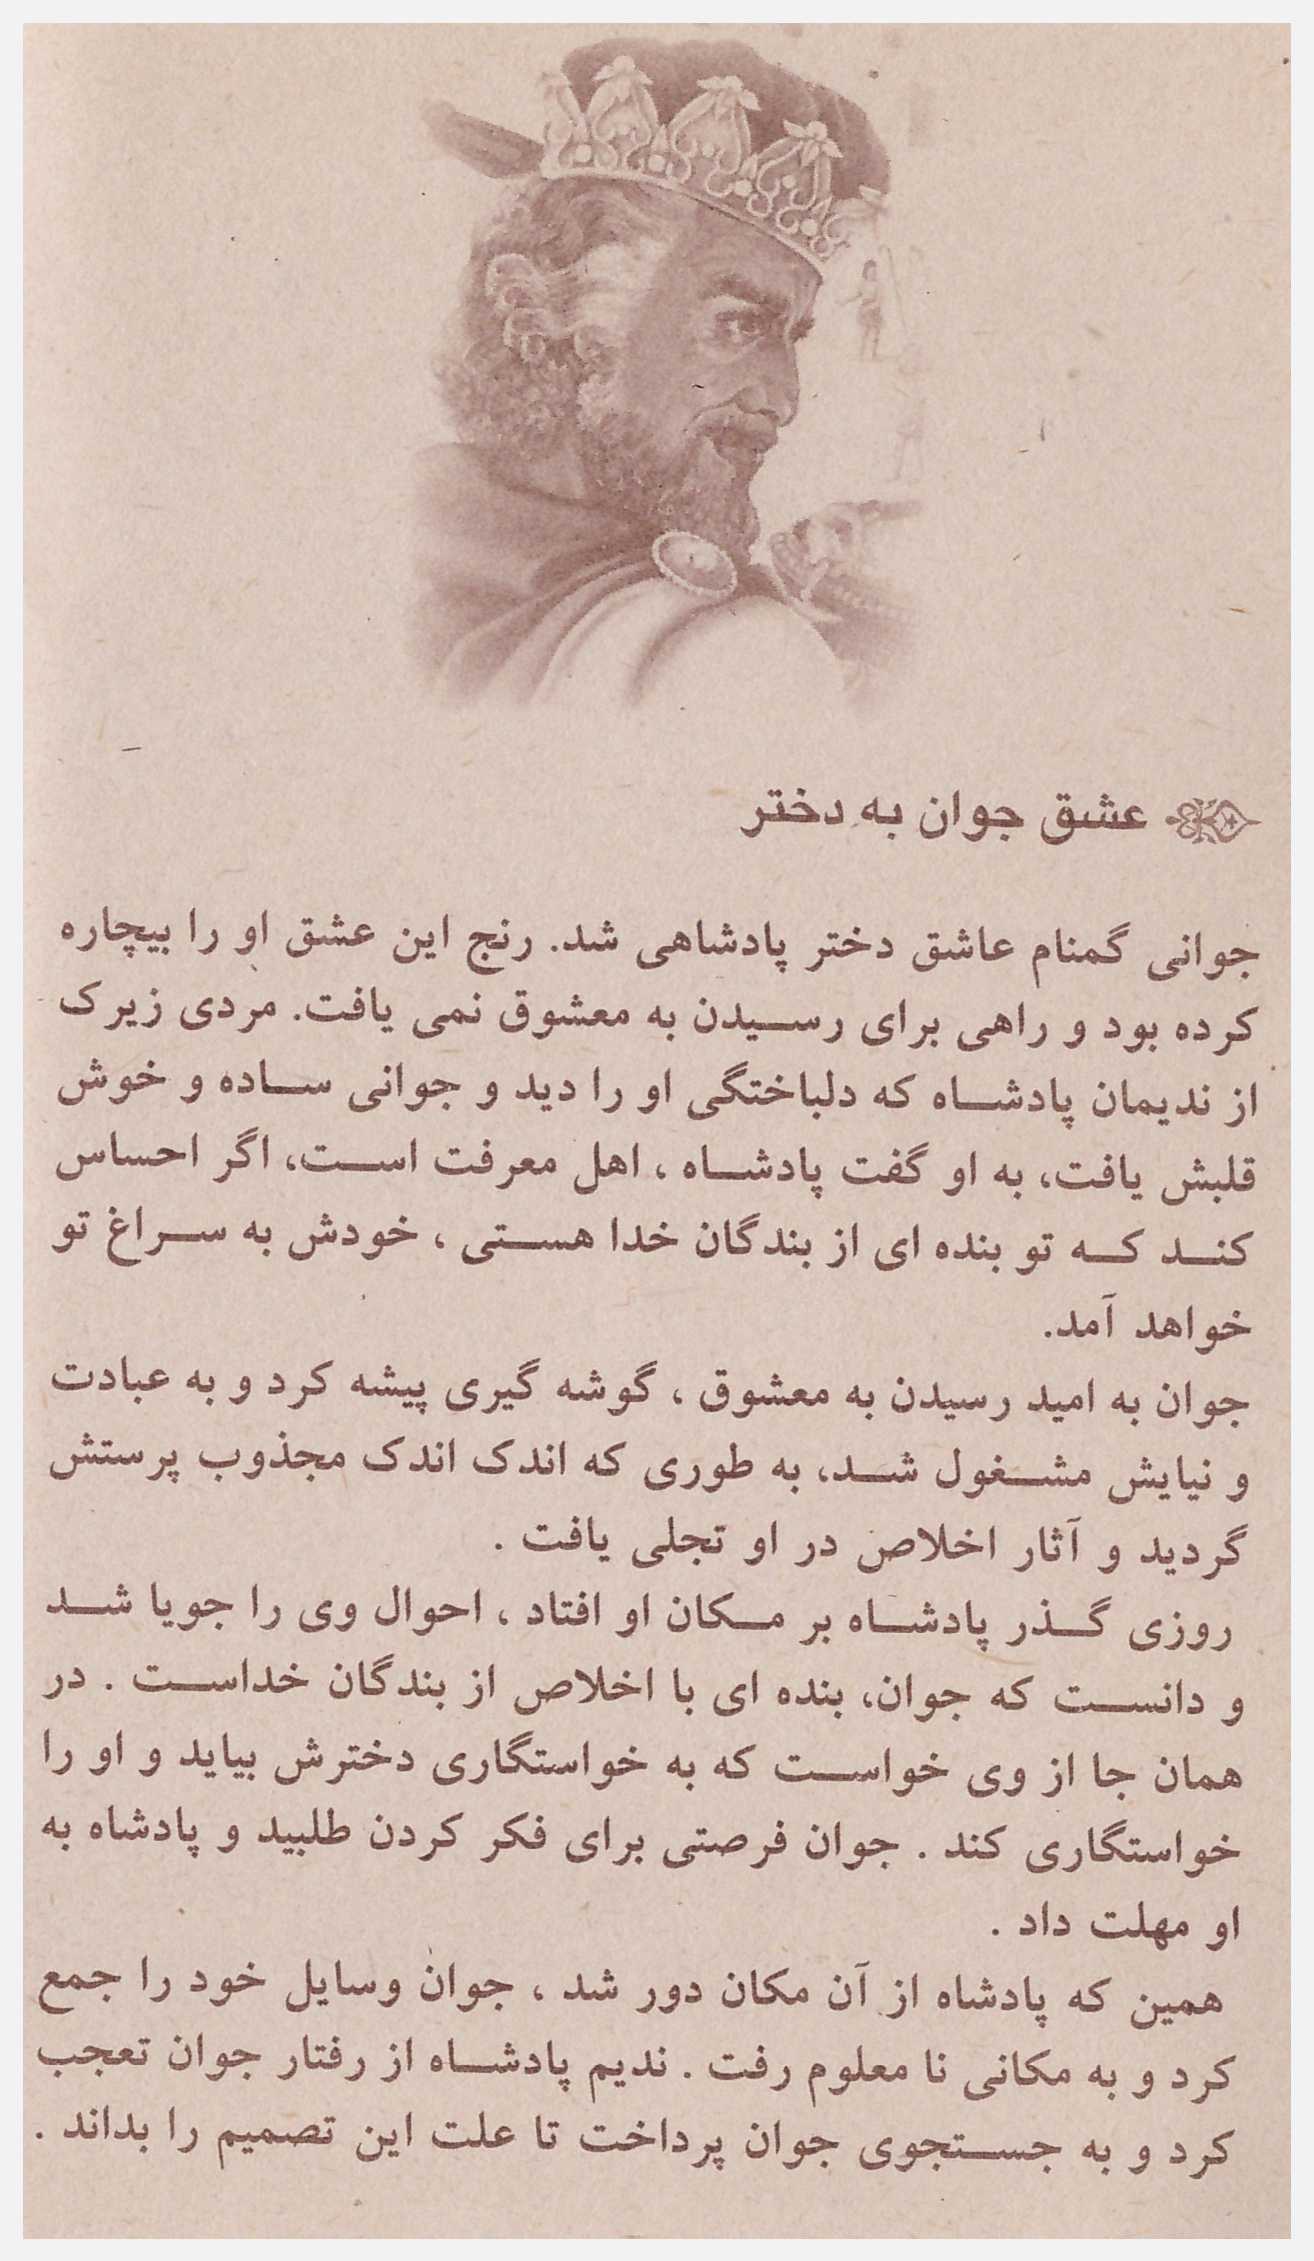 عشق جوان به دختر
جوانی گمنام عاشق دختر پادشاهی شد. رنج این عشق او را بیچاره
کرده بود و راهی برای رســیدن به معشوق نمی یافت. مردی زیرک
از ندیمان پادشــاه که دلباختگی او را دید و جوانی ســاده و خوش
قلبش یافت، به او گفت پادشــاه ، اهل معرفت اســت، اگر احساس
کنــد کــه تو بنده ای از بندگان خدا هســتی ، خودش به ســراغ تو
خواهد آمد.
جوان به امید رسیدن به معشوق ، گوشه گیری پیشه کرد و به عبادت
و نیایش مشــغول شــد، به طوری که اندک اندک مجذوب پرستش
گردید و آثار اخلاص در او تجلی یافت .
روزی گــذر پادشــاه بر مــکان او افتاد ، احوال وی را جویا شــد
و دانســت که جوان، بنده ای با اخلاص از بندگان خداســت . در
همان جا از وی خواســت که به خواستگاری دخترش بیاید و او را
خواستگاری کند . جوان فرصتی برای فکر کردن طلبید و پادشاه به
او مهلت داد .
همین که پادشاه از آن مکان دور شد ، جوان وسایل خود را جمع
کرد و به مکانی نا معلوم رفت . ندیم پادشــاه از رفتار جوان تعجب
کرد و به جســتجوی جوان پرداخت تا علت این تصمیم را بداند .